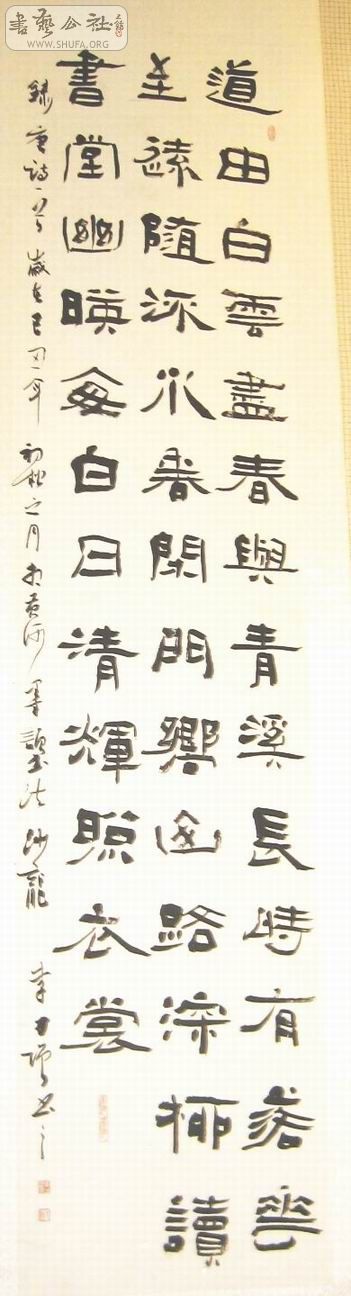 書藝公社
WWW.SHUFA.ORG
道由白雲盡春與青溪長時有落花
至遠隨流水香閑門嚮山路深柳讀
書堂幽暎每白日清輝照衣裳
錄唐詩一首歲在己丑年初秋之月於黃河墨法沙龍李書之